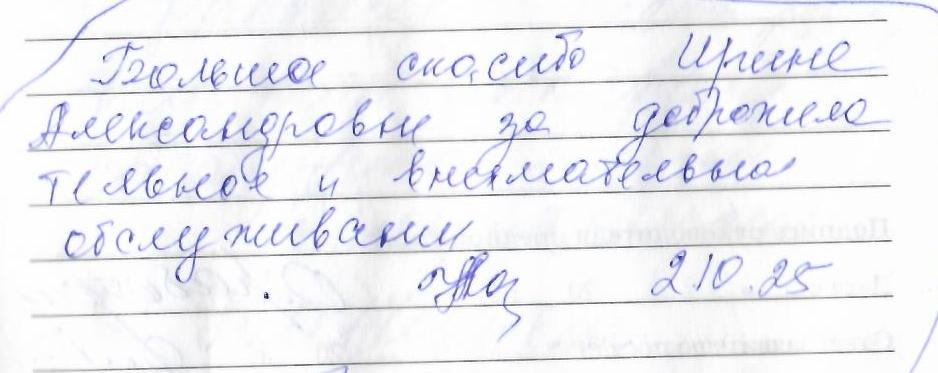 Большое спасибо Ирине
Александровне за доброжела
тельное и внимательное
обслуживание
2.10.25